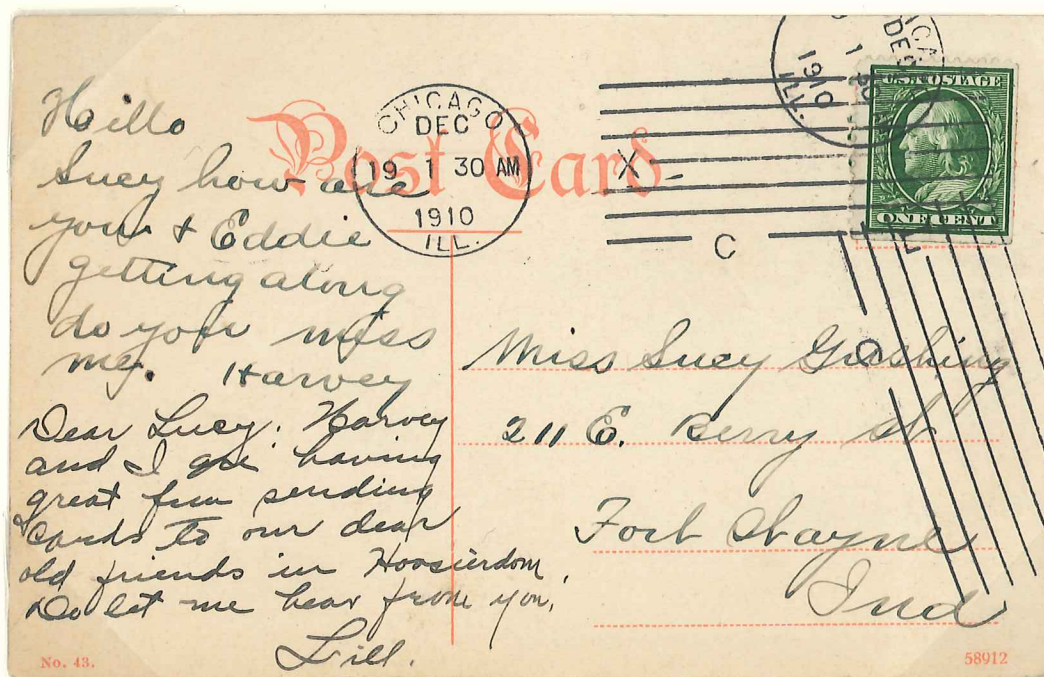 Post Card
CHICAGO
DEC
19 1 30 AM
1910
ILL.
X -
C
DEC
1
1910
ILL.
U.S. POSTAGE
ONE CENT
Hello
Lucy how are
you & Eddie
getting along
do you miss
me. Harvey
Dear Lucy: Harvey
and I are having
great fun sending
cards to our dear
old friends in Hoosierdom.
Do let me hear from you,
Lill.
Miss Lucy
211 E. Berry St
Fort Wayne
Ind
No. 43.
58912